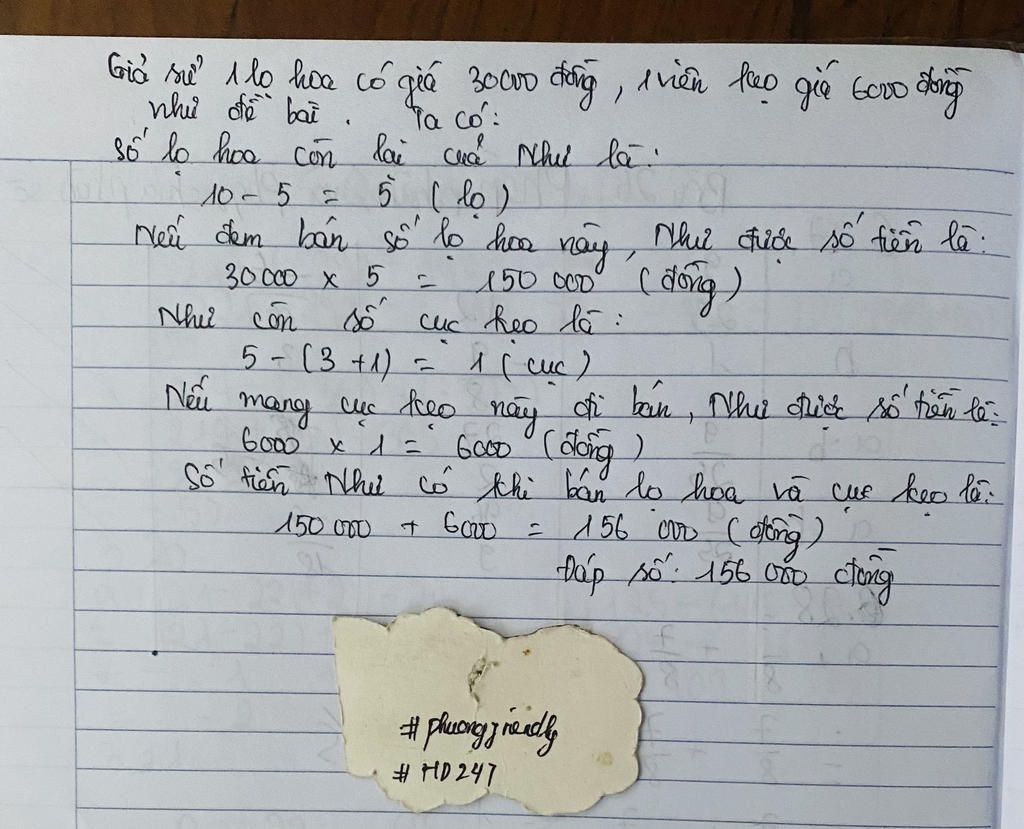 Giả sử 1 lọ hoa có giá 30000 đồng, 1 viên kẹo giá 6000 đồng
như đề bài. Ta có:
Số lọ hoa còn lại của Như là:
10 - 5 = 5 (lọ)
Nếu đem bán số lọ hoa này, Như được số tiền là:
30000 x 5 = 150 000 (đồng)
Như còn số cục kẹo là:
5 - (3 + 1) = 1 (cục)
Nếu mang cục kẹo này đi bán, Như được số tiền là:
6000 x 1 = 6000 (đồng)
Số tiền Như có khi bán lọ hoa và cục kẹo là:
150 000 + 6000 = 156 000 (đồng)
Đáp số: 156 000 đồng
# HD247